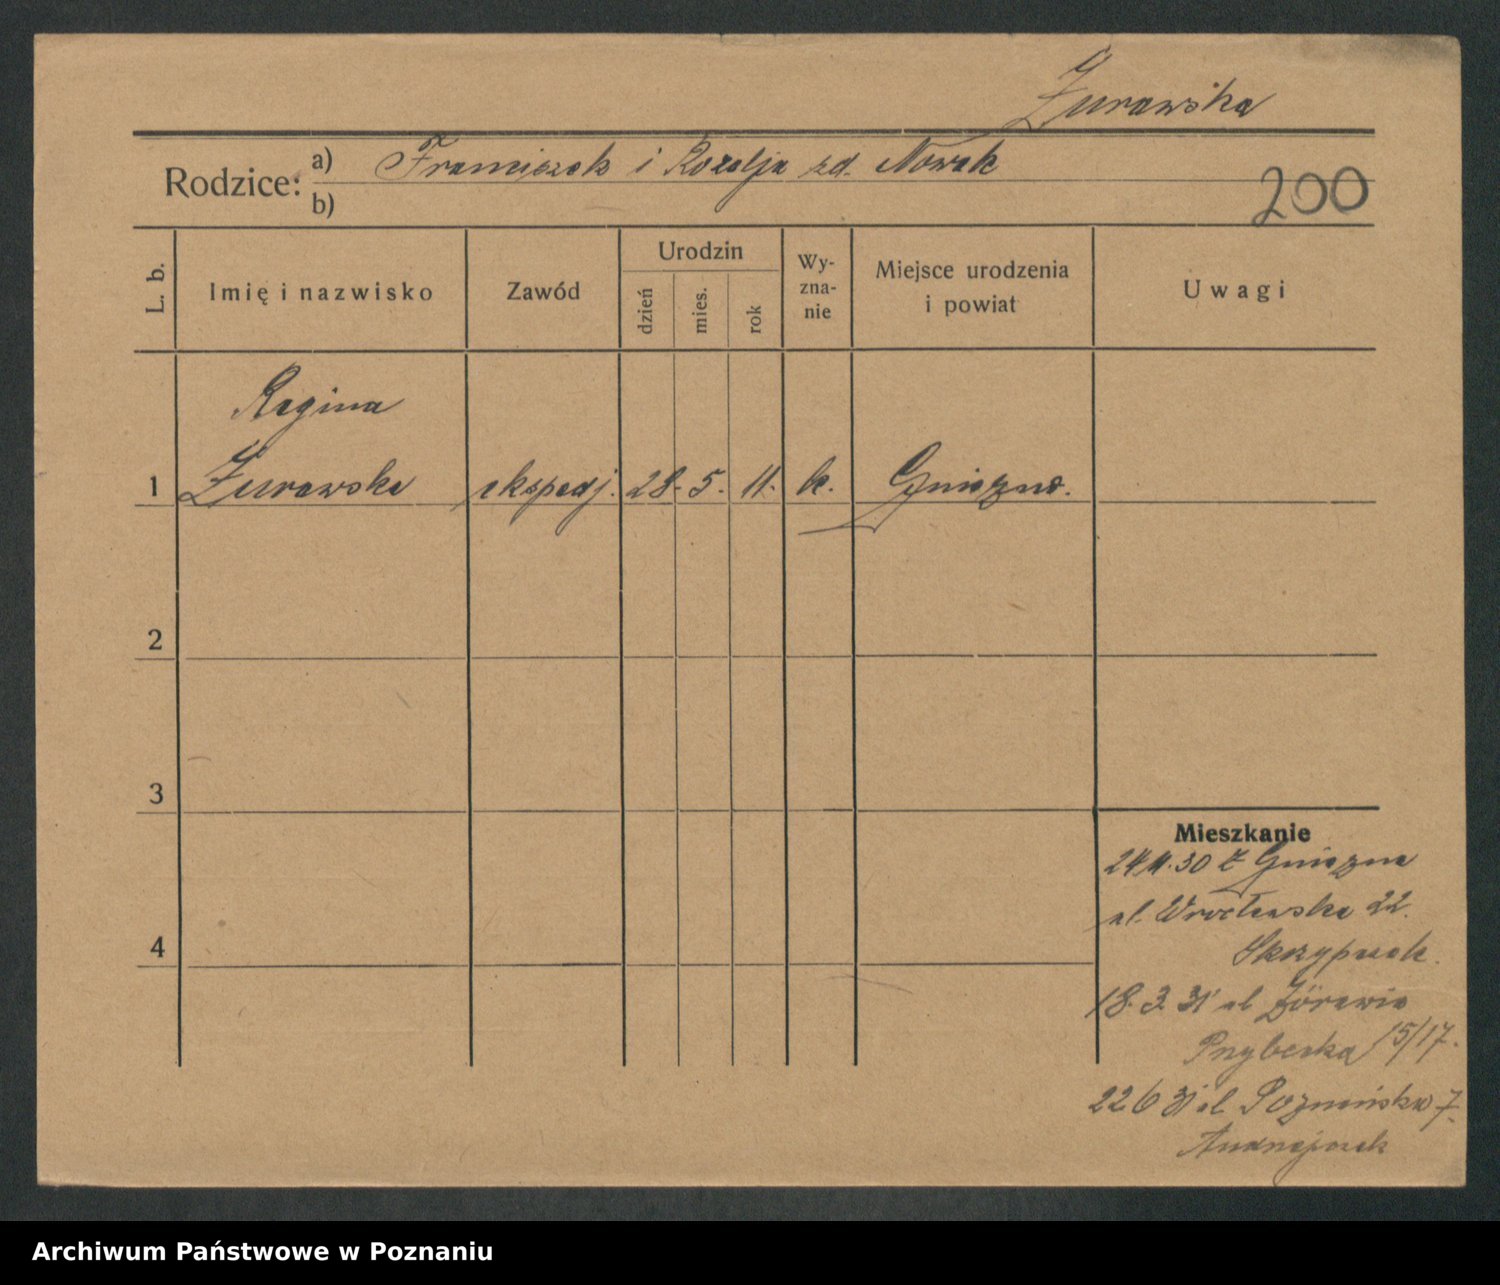 Żurawska
Rodzice:
a) Franciszek i Rozalja zd. Nowak
b)
200
L. b.
Imię i nazwisko
Zawód
Urodzin
dzień
mies.
rok
Wy-
zna-
nie
Miejsce urodzenia
i powiat
Uwagi
Regina
1 Żurawska ekspedj. 28. 5. 11. k. Gniezno.
2
3
4
Mieszkanie
24.11.30 z Gniezna
ul. Wrocławska 22.
Skrzypczak.
18. 3. 31 ul Żórawia
15/17.
22 6 31 ul Poznańska 7.
Andrzejczak
Archiwum Państwowe w Poznaniu